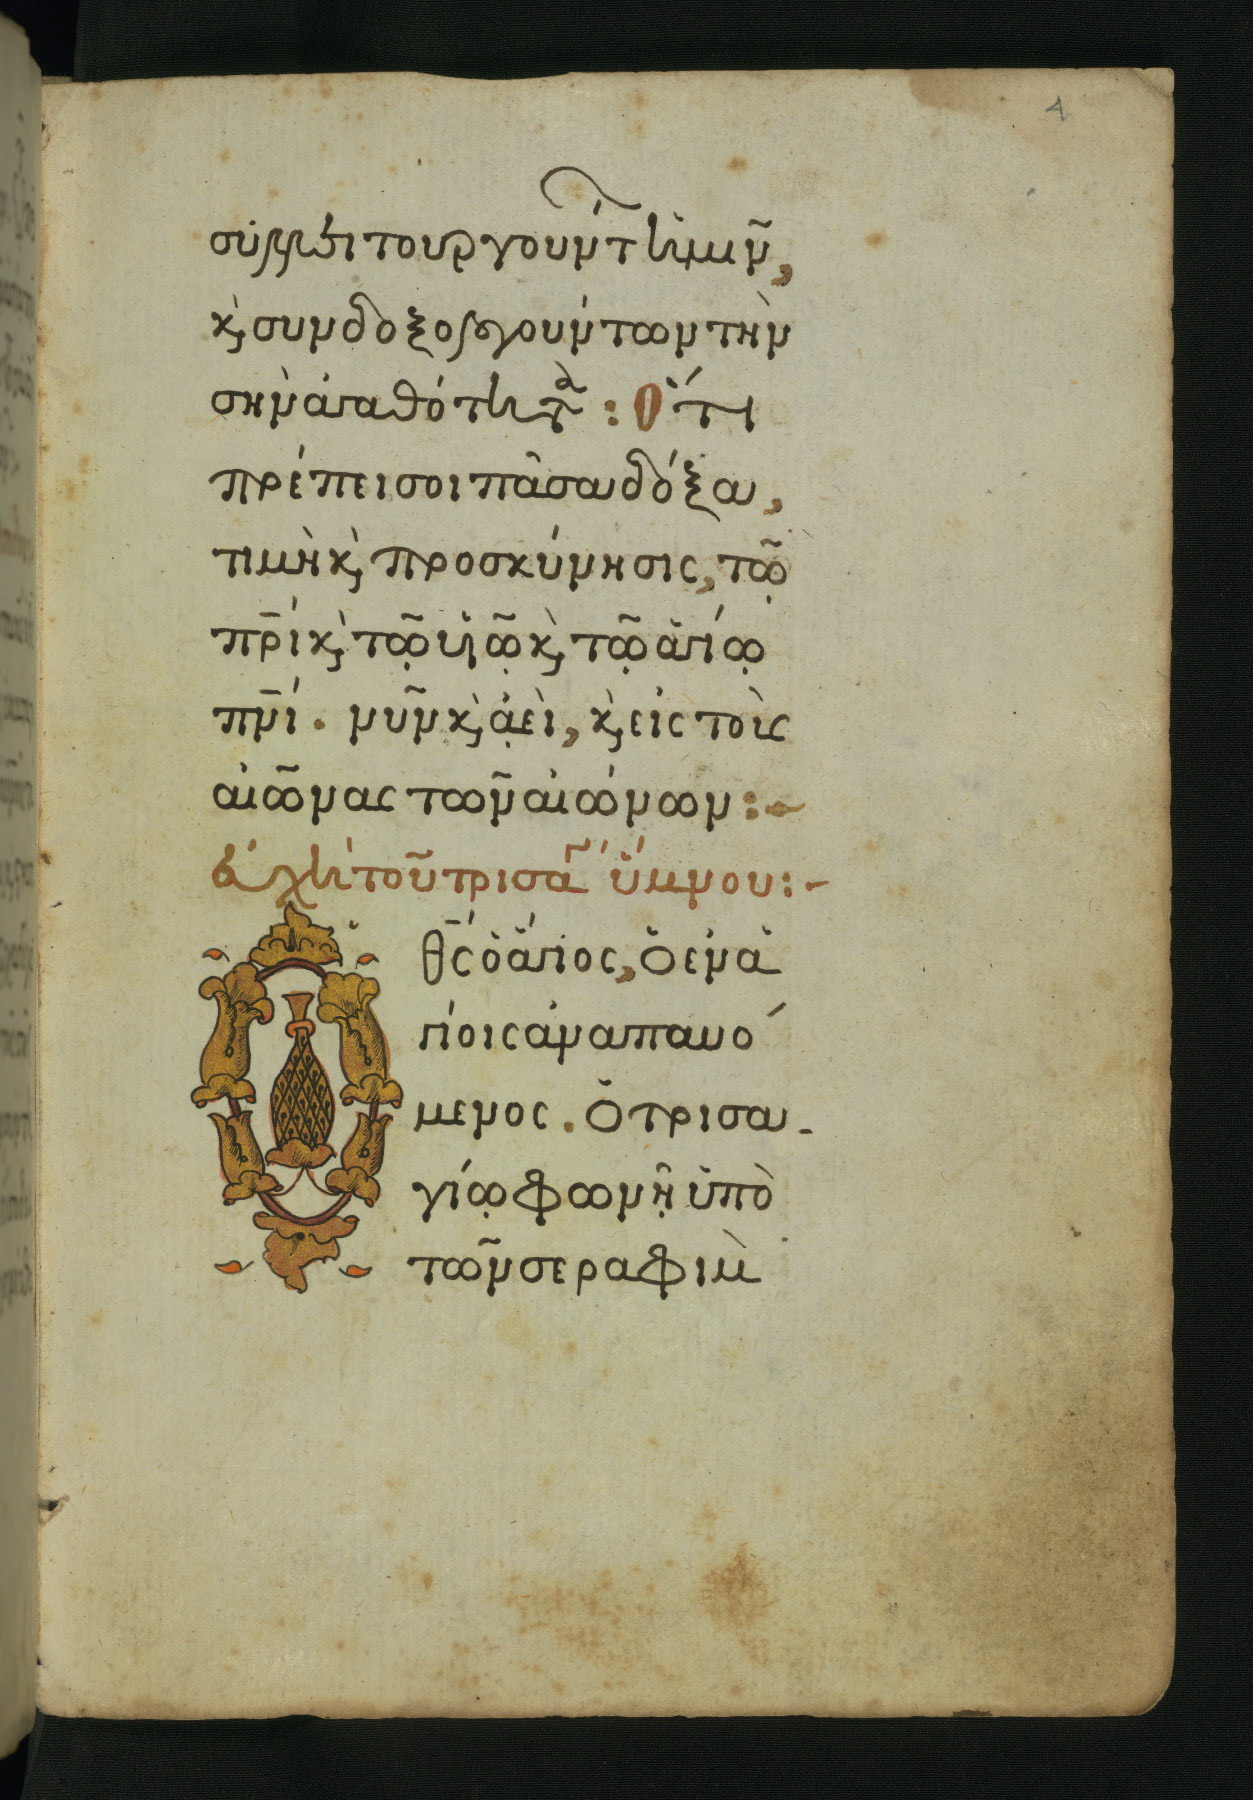 4
συλλειτουργούντ ἡμῖν,
κ̀ συνδοξολογούντων τὴν
σὴν ἀγαθότητα: Ὅτι
πρέπει σοι πᾶσα δόξα,
τιμὴ κ̀ προσκύνησις, τῷ
πρ̅ί κ̀ τῷ υἱῷ κ̀ τῷ ἁγίῳ
πν̅ί. νῦν κ̀ ἀεὶ, κ̀ εἰς τοὺς
αἰῶνας τῶν αἰώνων:
εὐχὴ τοῦ τρισα ὕμνου:-
Ὁ θ̅ς ὁ ἅγιος, ὁ ἐν ἁ
γίοις ἀναπαυό
μενος. ὁ τρισα-
γίῳ φωνῇ ὑπὸ
τῶν σεραφὶμ